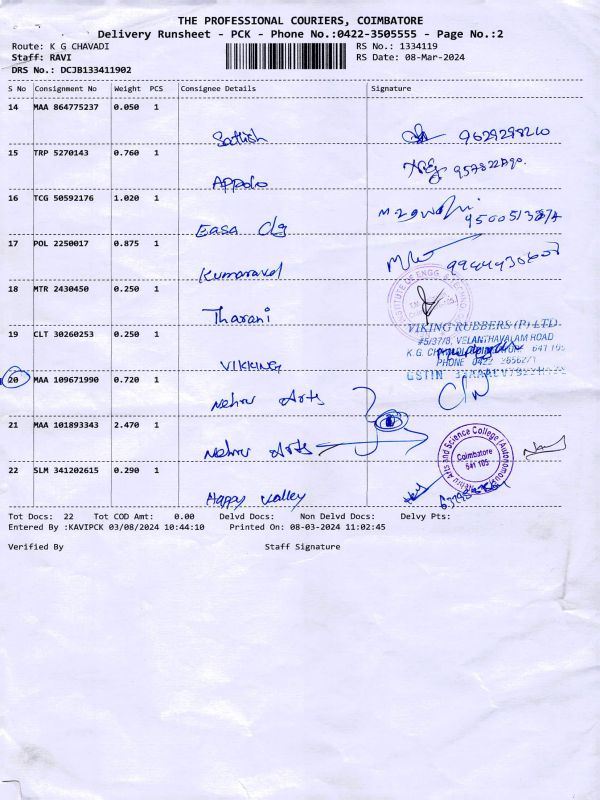 THE PROFESSIONAL COURIERS, COIMBATORE
Delivery Runsheet - PCK - Phone No.:0422-3505555 - Page No.:2
Route: K G CHAVADI RS No.: 1334119
Staff: RAVI RS Date: 08-Mar-2024
DRS No.: DCJB133411902
S No Consignment No Weight PCS Consignee Details Signature
14 MAA 864775237 0.050 1
Sathish 9629298210
15 TRP 5270143 0.760 1
Appolo
16 TCG 50592176 1.020 1
Easa Clg
17 POL 2250017 0.875 1
Kumaravel
18 MTR 2430450 0.250 1
Tharani
INSTITUTE OF ENGG. &
19 CLT 30260253 0.250 1
VIKING RUBBERS (P) LTD
#5/37/8, VELANTHAVALAM ROAD
K.G. 641 105
PHONE 0422
GSTIN
VIKKING
20 MAA 109671990 0.720 1
Nehru Arts
21 MAA 101893343 2.470 1
Nehru Arts
Nehru Arts and Science College (Autonomous)
Coimbatore
641 105
22 SLM 341202615 0.290 1
Happy Valley
Tot Docs: 22 Tot COD Amt: 0.00 Delvd Docs: Non Delvd Docs: Delvy Pts:
Entered By :KAVIPCK 03/08/2024 10:44:10 Printed On: 08-03-2024 11:02:45
Verified By Staff Signature